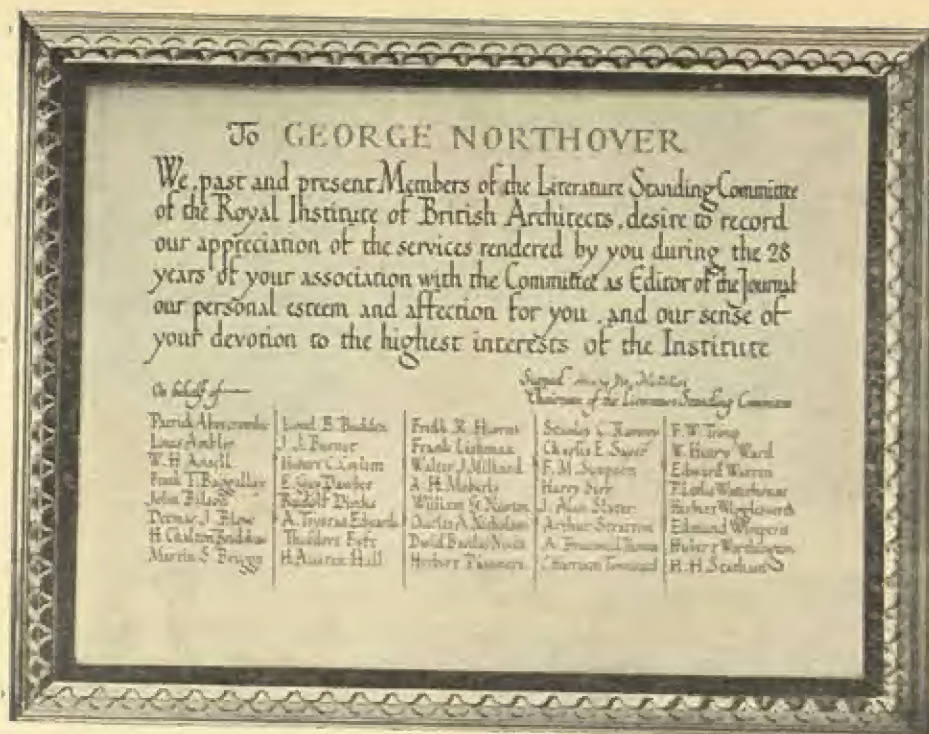 To GEORGE NORTHOVER
We, past and present Members of the Literature Standing Committee
of the Royal Institute of British Architects, desire to record
our appreciation of the services rendered by you during the 28
years of your association with the Committee as Editor of the Journal
our personal esteem and affection for you, and our sense of
your devotion to the highest interests of the Institute
On behalf of
Signed
Chairman of the Literature Standing Committee
Patrick Abercrombie
Louis Ambler
W. H. Ansell
Frank T. Baggallay
John Bilson
Detmar J. Blow
H. Chalton Bradshaw
Martin S. Briggs
Lionel B. Budden
J. J. Burnet
E. Guy Dawber
Rudolf Dircks
A. Trystan Edwards
Theodore Fyfe
H. Austen Hall
Fredk R.
Frank Lishman
Walter J. Millard
A. H. Moberly
William G. Newton
Charles A. Nicholson
David Barclay Niven
Herbert Passmore
Stanley C. Ramsey
Charles E. Sayer
F. M. Simpson
Harry Sirr
J. Alan Slater
Arthur Stratton
A.
Harrison Townsend
F. W. Troup
W. Henry Ward
Edward Warren
P. Leslie Waterhouse
Herbert Wigglesworth
Edmund Wimperis
Hubert Worthington
H. H. Statham